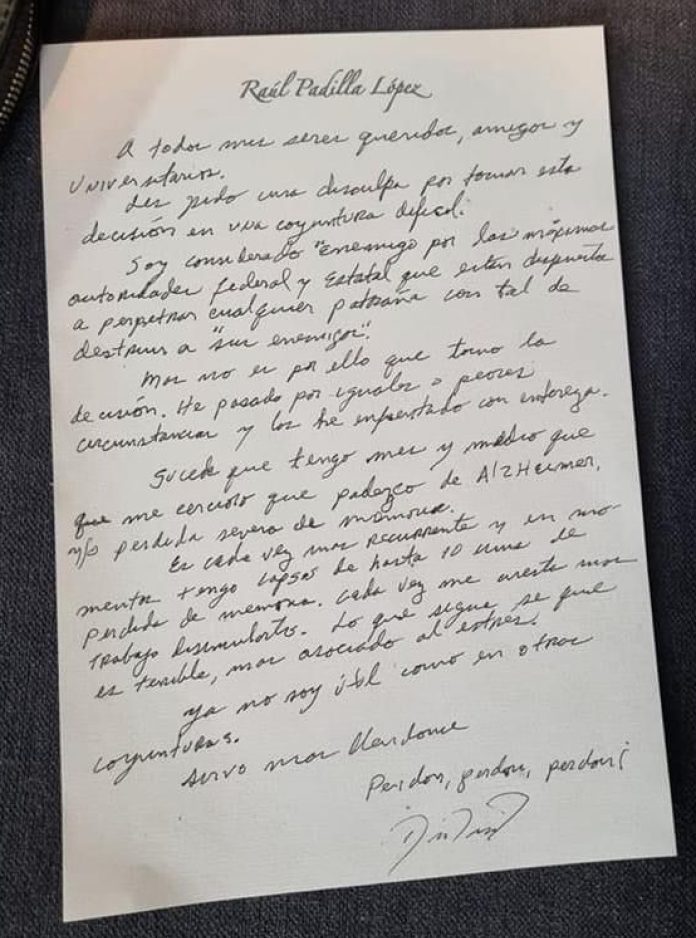 Raúl Padilla López
A todos mis seres queridos, amigos y
Universitarios.
Les pido una disculpa por tomar esta
decisión en una coyuntura difícil.
Soy considerado "enemigo por las máximas
autoridades federal y Estatal que están dispuestas
a perpetrar cualquier patraña con tal de
destruir a "sus enemigos".
Mas no es por ello que tomo la
decisión. He pasado por iguales o peores
circunstancias y las he enfrentado con entereza.
Sucede que tengo mes y medio que
que me cercioro que padezco de Alzheimer,
y/o perdida severa de memoria.
Es cada vez mas recurrente y en mo-
mentos tengo lapsos de hasta 10 de
perdida de memoria. Cada vez me cuesta mas
trabajo disimularlos. Lo que sigue se que
es terrible, mas asociado al estrés.
Ya no soy útil como en otras
coyunturas.
Sirvo mas
Perdon, perdon, perdon!